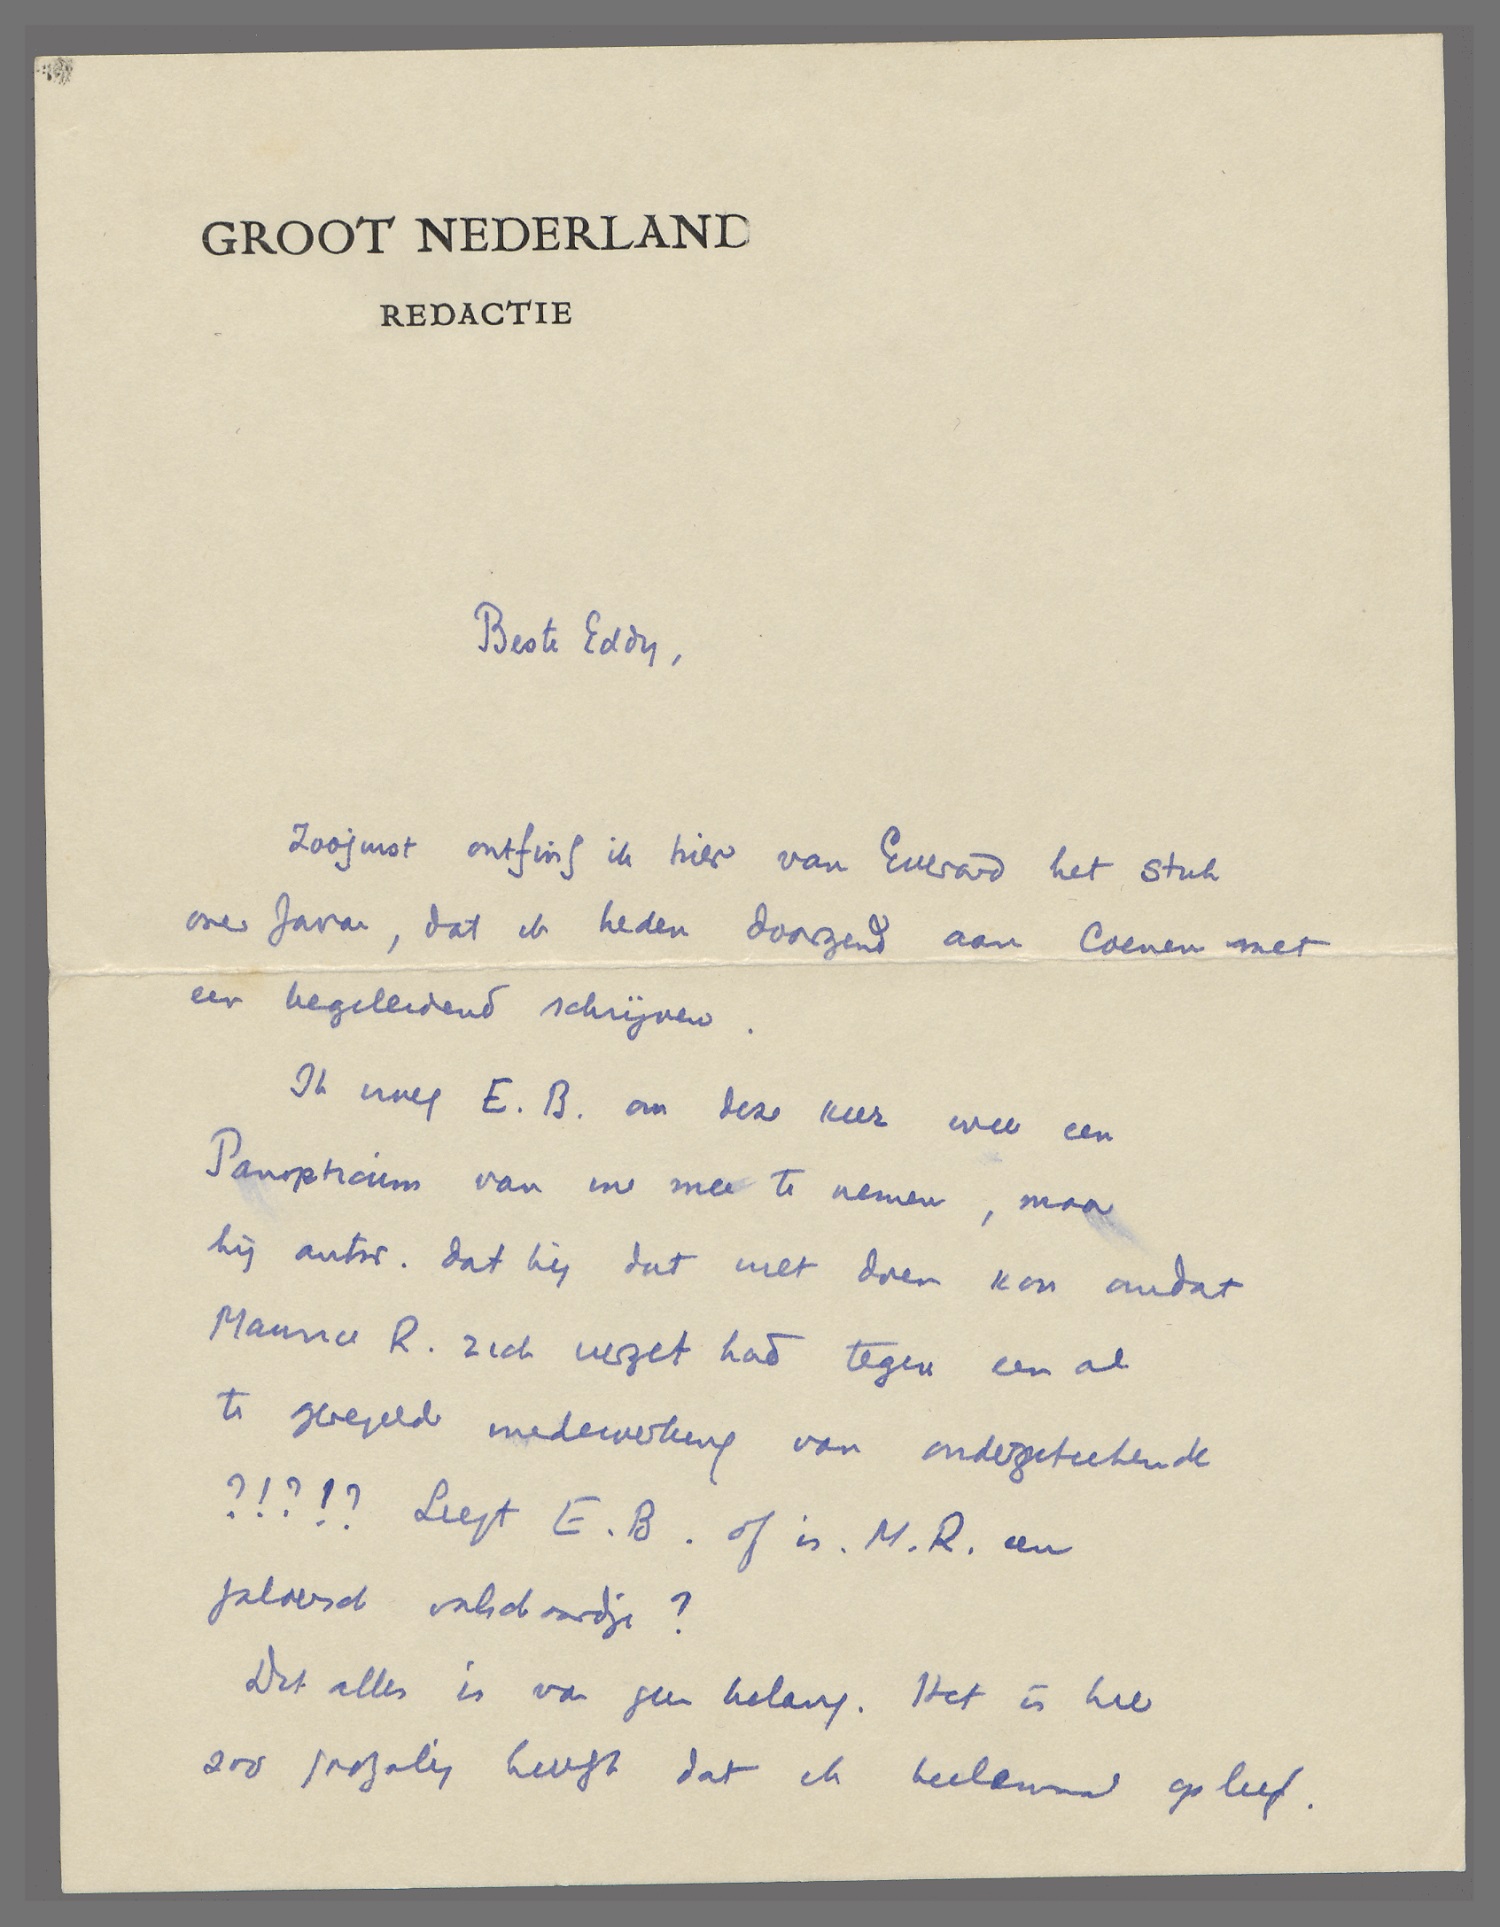 GROOT NEDERLAND
REDACTIE
Beste Eddy,
Zoojuist ontfing ik hier van Everard het stuk
over Java, dat ik heden doorzend aan Coenen met
een begeleidend schrijven.
Ik vroeg E. B. om deze keer weer een
Panopticum van me mee te nemen, maar
hij antw. dat hij dat niet doen kon omdat
Maurice R. zich verzet had tegen een al
te geregelde medewerking van ondergeteekende
?!?!? Liegt E. B. of is M. R. een
jaloersch valschaardje?
Dit alles is van geen belang. Het is hier
zoo goddelijk dat ik heelemaal opleef.